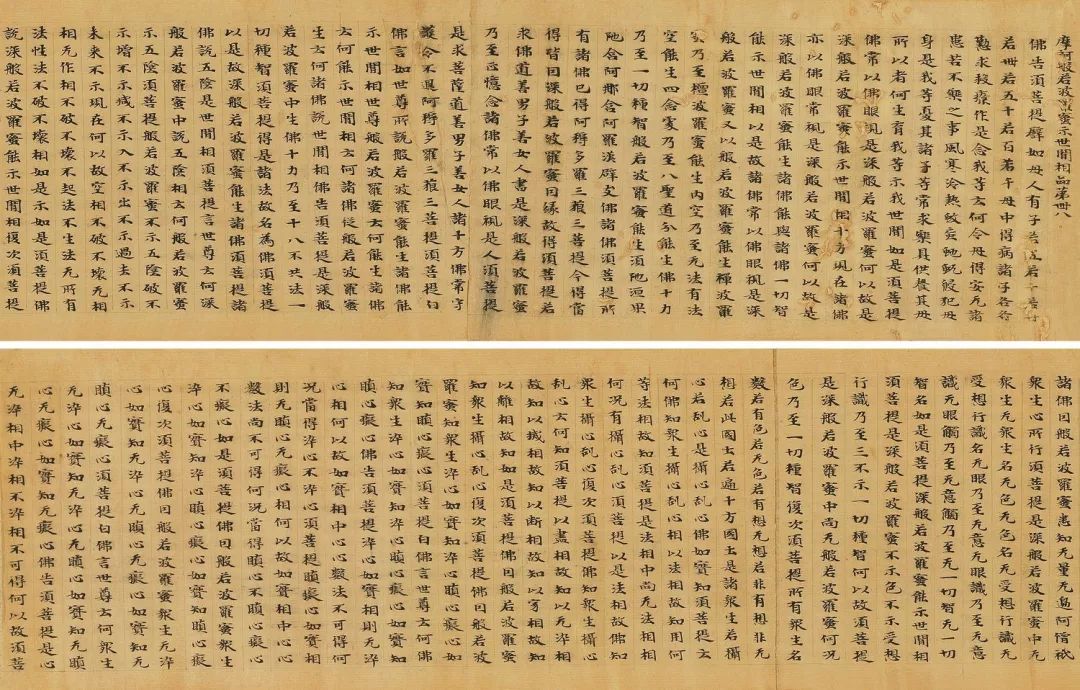 摩訶般若波羅蜜示世間相品第卌八
佛告須菩提辟如母人有子若五若十若廿
若卅若五十若百若千母中得病諸子各各
懃求救療作是念我等云何令母得安无諸
患苦不樂之事風寒冷熱蚊虻虵蚖毀犯母
身是我等憂其諸子等常求樂具供養其母
所以者何生育我等示我世間如是須菩提
佛常以佛眼視是深般若波羅蜜何以故是
深般若波羅蜜能示世間相十方現在諸佛
亦以佛眼常視是深般若波羅蜜何以故是
深般若波羅蜜能生諸佛能與諸佛一切智
能示世間相以是故諸佛常以佛眼視是深
般若波羅蜜又以般若波羅蜜能生禪波羅
蜜乃至檀波羅蜜能生內空乃至无法有法
空能生四念處乃至八聖道分能生佛十力
乃至一切種智般若波羅蜜能生須陀洹果
陀含阿那含阿羅漢辟支佛諸佛須菩提所
有諸佛已得阿耨多羅三藐三菩提今得當
得皆因深般若波羅蜜因緣故得須菩提若
求佛道善男子善女人書是深般若波羅蜜
乃至正憶念諸佛常以佛眼視是人須菩提
是求菩薩道善男子善女人諸十方佛常守
護令不退阿耨多羅三藐三菩提須菩提白
佛言如世尊所說般若波羅蜜能生諸佛能
示世間相世尊般若波羅蜜云何能生諸佛
云何能示世間相云何諸佛從般若波羅蜜
生云何諸佛說世間相佛告須菩提是深般
若波羅蜜中生佛十力乃至十八不共法一
切種智須菩提得是諸法故名為佛須菩提
以是故深般若波羅蜜能生諸佛須菩提諸
佛說五陰是世間相須菩提言世尊云何深
般若波羅蜜中說五陰相云何般若波羅蜜
示五陰須菩提般若波羅蜜不示五陰破不
示增不示減不示入不示出不示過去不示
未來不示現在何以故空相不破不壞无相
相无作相不破不壞不起法不生法无所有
法性法不破不壞相如是示如是須菩提佛
說深般若波羅蜜能示世間相復次須菩提
諸佛因般若波羅蜜悉知无量无邊阿僧祇
眾生心所行須菩提是深般若波羅蜜中无
眾生无眾生名无色无色名无受想行識无
受想行識名无眼乃至无意无眼識乃至无意
識无眼觸乃至无意觸乃至无一切智无一切
智名如是須菩提深般若波羅蜜能示世間相
須菩提是深般若波羅蜜不示色不示受想
行識乃至不示一切種智何以故須菩提
是深般若波羅蜜中尚无般若波羅蜜何況
色乃至一切種智復次須菩提所有眾生名
數若有色若无色若有想无想若非有想非无
想若此國土若遍十方國土是諸眾生若攝
心若亂心是攝心亂心佛如實知須菩提云
何佛知眾生攝心亂心相以法相故知用何
等法相故知須菩提是法相中尚无法相相
何況有攝心亂心須菩提以是法相故佛知
眾生攝心亂心復次須菩提佛知眾生攝心
亂心云何知須菩提以盡相故知以无染相
故知以滅相故知以斷相故知以寂相故知
以離相故知如是須菩提佛因般若波羅蜜
知眾生攝心亂心復次須菩提佛因般若波
羅蜜知眾生染心如實知染心瞋心癡心如
實知瞋心癡心須菩提白佛言世尊云何佛
知眾生染心如實知染心瞋心癡心如實知
瞋心癡心佛告須菩提染心如實相則无染
心相何以故如實相中心心數法不可得何
況當得染心不染心須菩提瞋心癡心如實相
則无瞋无癡心相何以故如實相中心心
數法尚不可得何況當得瞋心不瞋心癡心
不癡心如是須菩提佛因般若波羅蜜眾生
染心如實知染心瞋心癡心如實知瞋心癡
心復次須菩提佛因般若波羅蜜眾生无染
心如實知无染心无瞋心无癡心如實知无
瞋心无癡心須菩提白佛言世尊云何眾生
无染心如實知无染心无瞋心如實知无瞋
心无癡心如實知无癡心佛告須菩提是心
无染相中染相不染相不可得何以故須菩